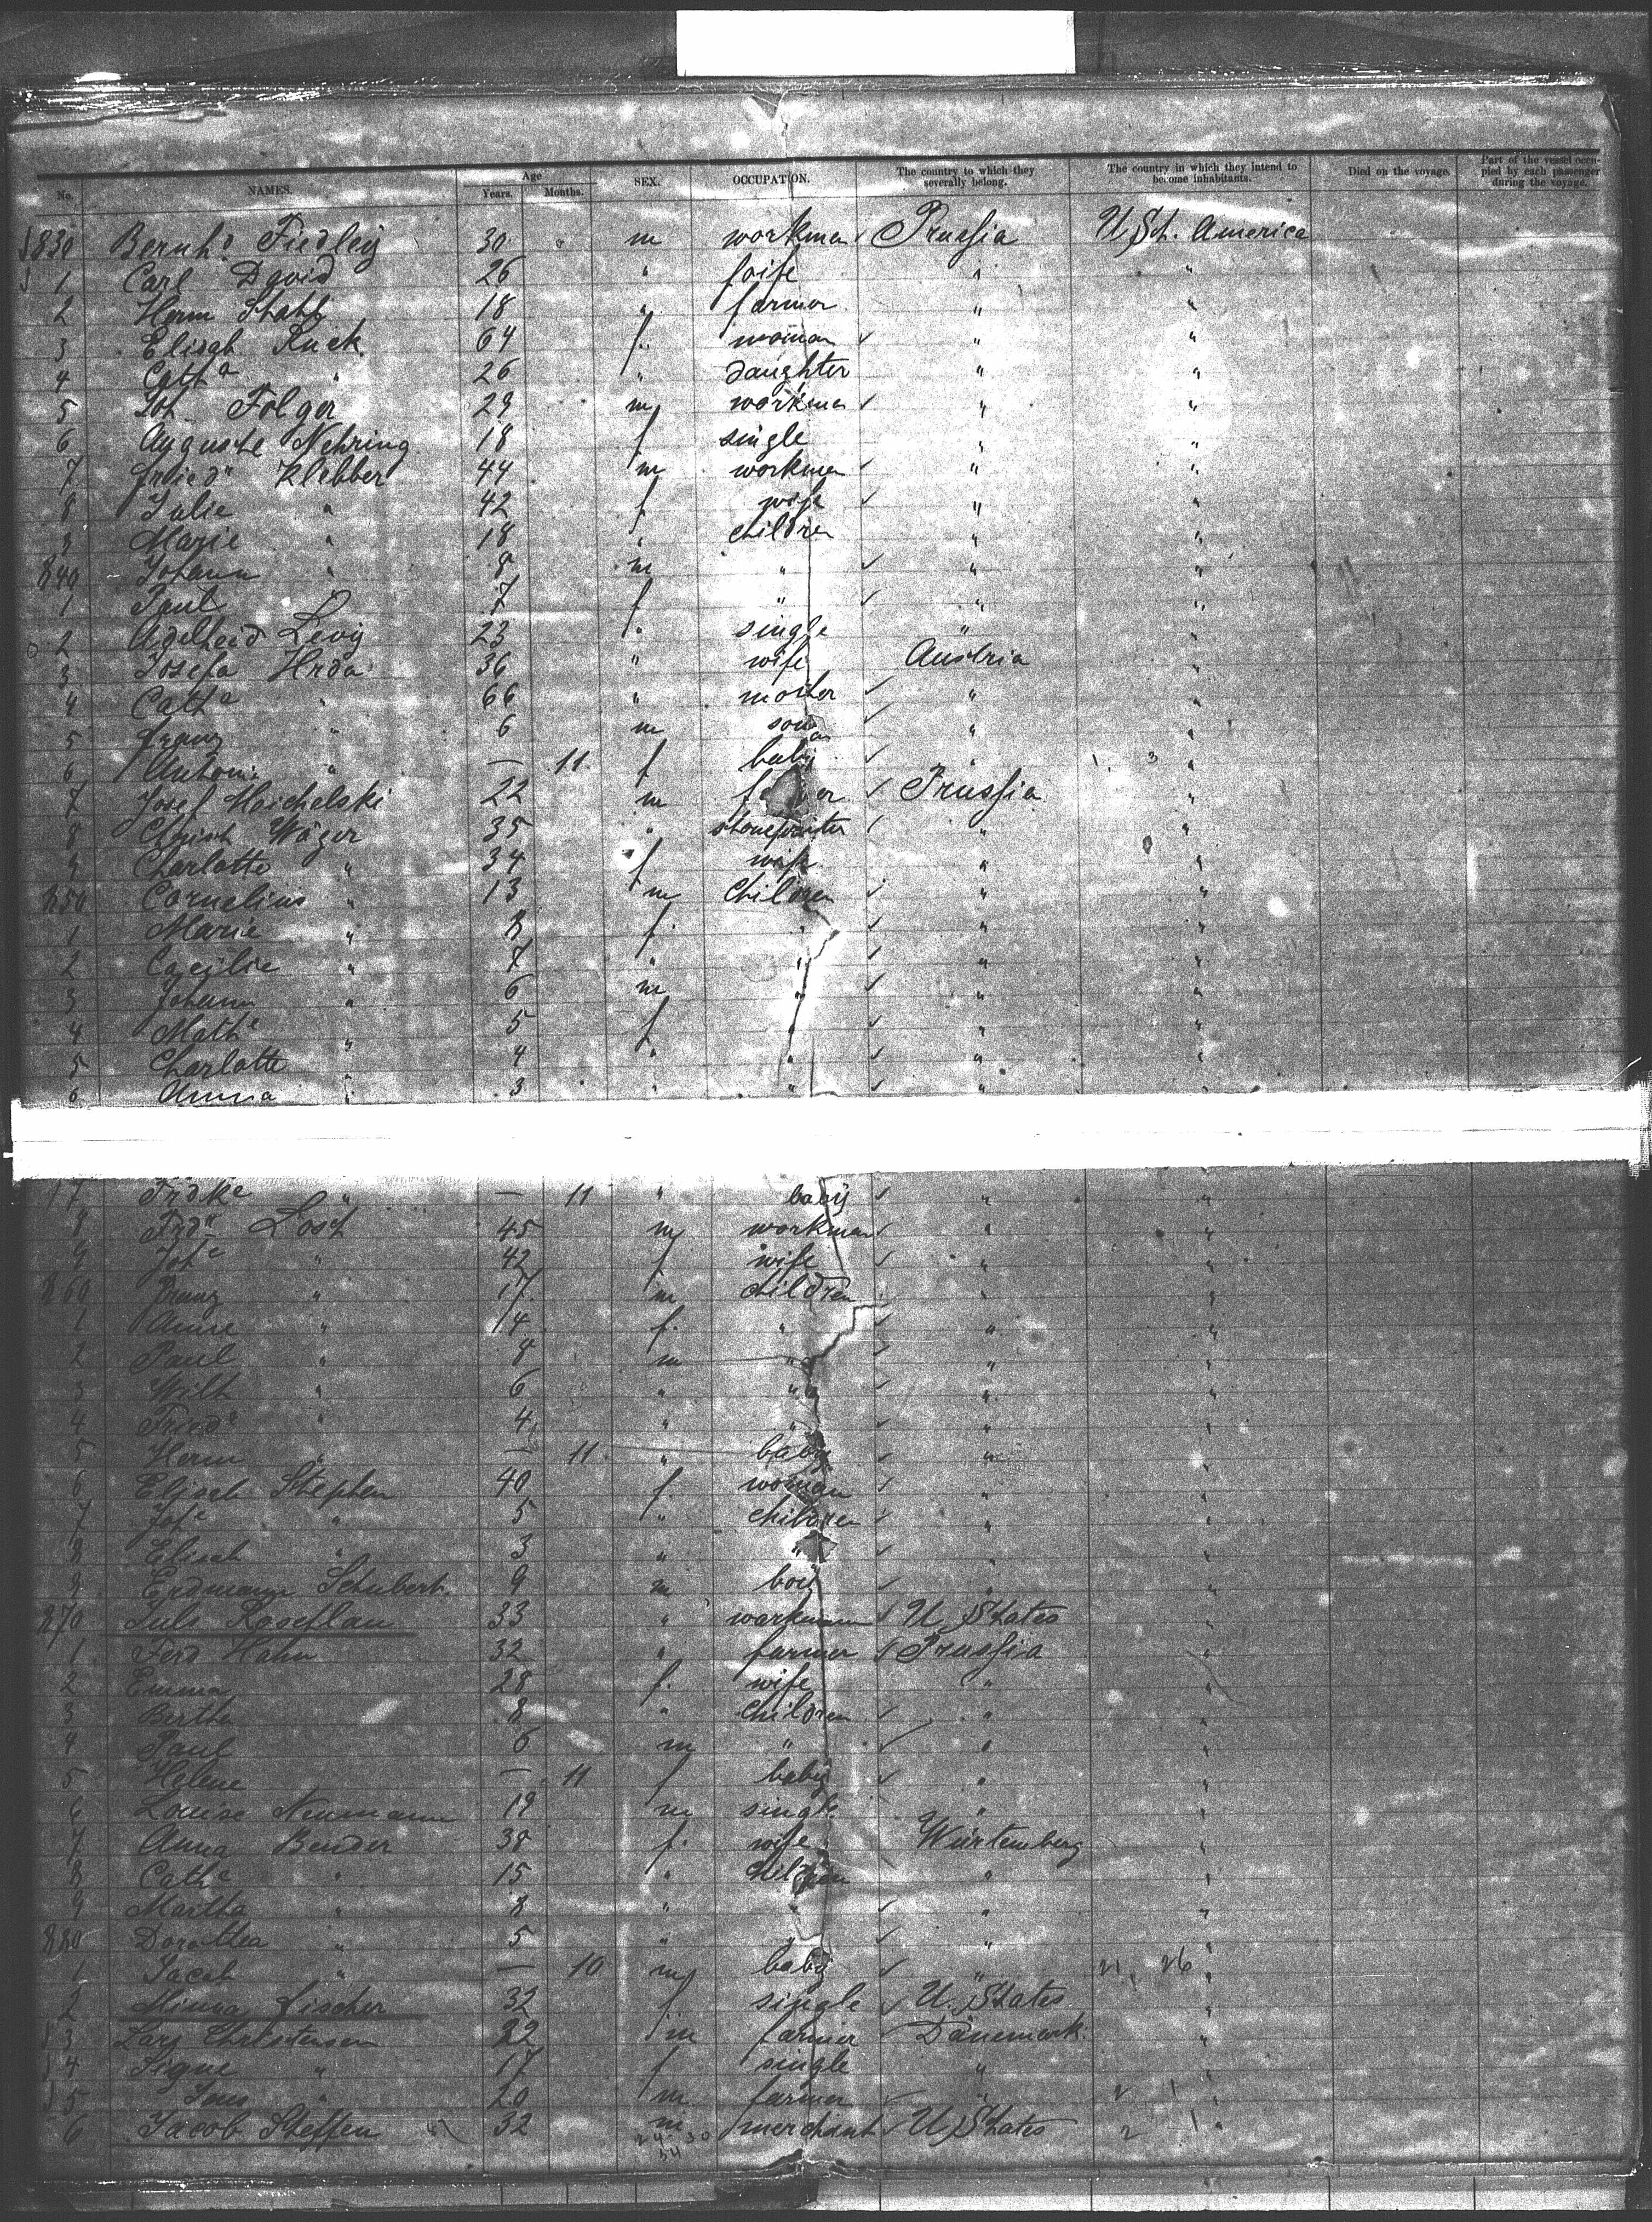 No. NAMES. Age Years. Months. SEX. OCCUPATION. The country to which they severally belong. The country in which they intend to become inhabitants. Died on the voyage. Part of the vessel occupied by each passenger during the voyage.
830 Bernhd. Fiedley 30 " m workman Prussia U St. America
1 Carl David 26 " " "
2 Herm Stahl 18 " farmer " "
3 Elisab Ruck 64 f. woman " "
4 Catha " 26 " daughter " "
5 Joh Folger 29 m workman " "
6 Auguste Nehring 18 f single " "
7 Fried Klebber 44 m workman " "
8 Julie " 42 f wife " "
9 Marie " 18 " children " "
840 Johann " 8 m " " "
1 Paul " 7 f " " "
2 Adelheid Levy 23 " single " "
3 Josefa Hrda 36 " wife Austria "
4 Catha " 66 " " "
5 Franz " 6 m son " "
6 Antoni " — 11 f baby " "
7 Josef Moichelski 22 m Prussia "
8 Christ Wäger 35 " " "
9 Charlotte " 34 f wife " "
850 Cornelius " 13 m children " "
1 Marie " 8 f. " " "
2 Cacilie " 7 " " " "
3 Johann " 6 m " " "
4 Mathe " 5 f " " "
5 Charlotte " 4 " " " "
6 Anna " 3 " " "
7 Frdke " — 11 " baby " "
8 Frdr Losch 45 m workman " "
9 Johe " 42 f wife " "
860 Franz " 17 m children " "
1 Anne " 14 f. " " "
2 Paul " 8 m " " "
3 Wilh " 6 " " " "
4 Fried " 4 " " " "
5 Herm " — 11 " baby " "
6 Elisab Stephen 40 f. woman " "
7 Johe " 5 " children " "
8 Elisab " 3 " " " "
9 Erdmann Schubert 9 m boy " "
870 Juls Roseflau 33 " workman U States "
1 Ferd Hahn 32 " farmer Prussia "
2 Emma 28 f. wife " "
3 Bertha 8 " children " "
4 Paul 6 m " " "
5 Helene — 11 f baby " "
6 Louise Neumann 19 m single " "
7 Anna Bender 38 f. wife Würtemberg "
8 Cathe " 15 " children " "
9 Martha " 8 " " " "
880 Dorothea " 5 " " " "
1 Jacob " — 10 m baby " "
2 Minna Fischer 32 f single U. States "
3 Lars Christensen 22 m farmer Dänemark "
4 Signe " 17 f single " "
5 Jens " 20 m farmer " "
6 Jacob Steffen 32 m merchant U States "